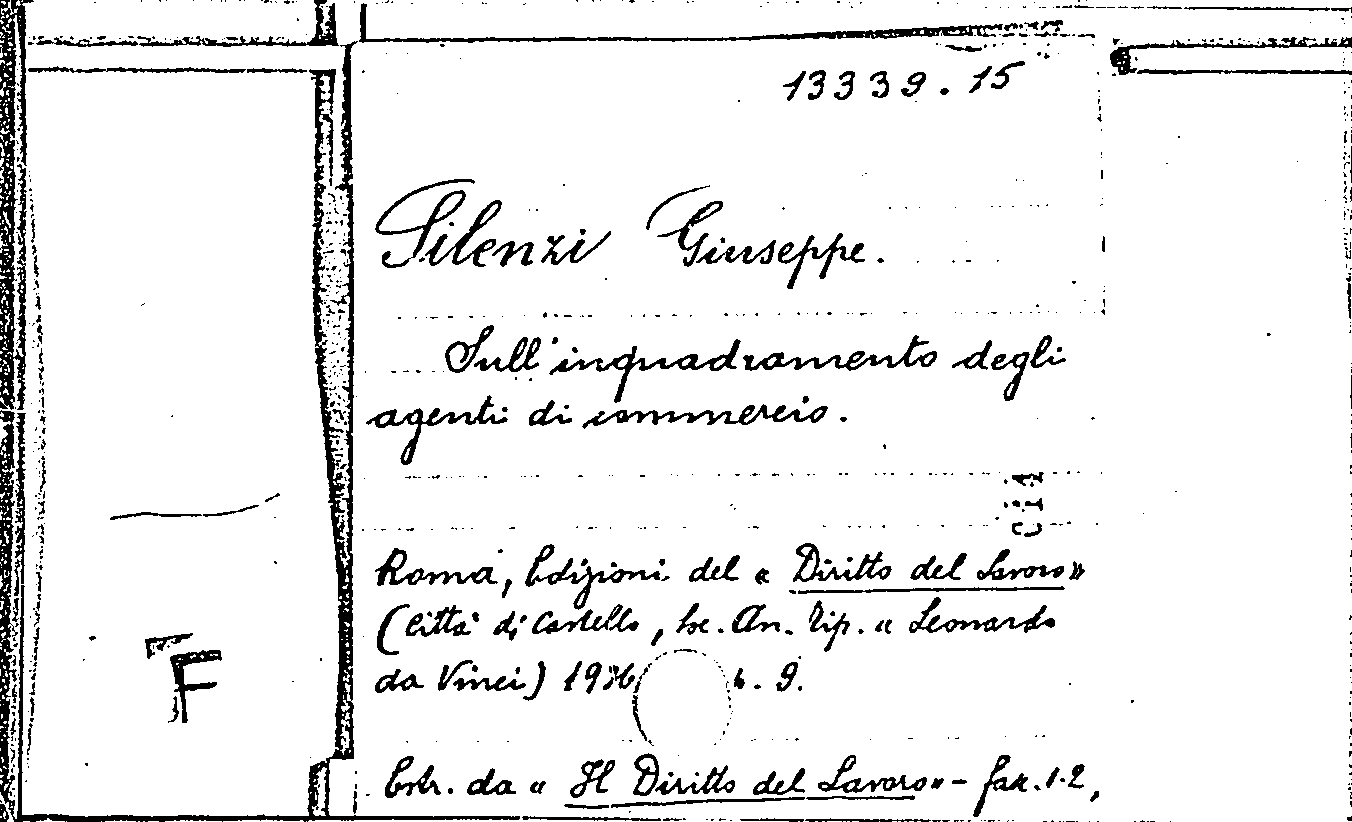 13339.15
Silenzi Giuseppe.
Sull'inquadramento degli
agenti di commercio.
C i 1
Roma, Edizioni del « Diritto del Lavoro»
(Città di Castello, Soc. An. Tip. « Leonardo
da Vinci) 1936 4. 9.
F
Estr. da « Il Diritto del Lavoro» - fasc. 1-2,